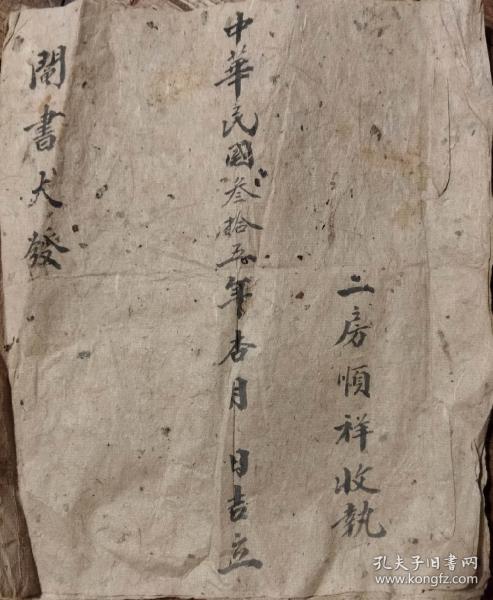 二房順祥收執
中華民國叁拾五年杏月 日吉立
鬮書大發
孔夫子旧书网
www.kongfz.com